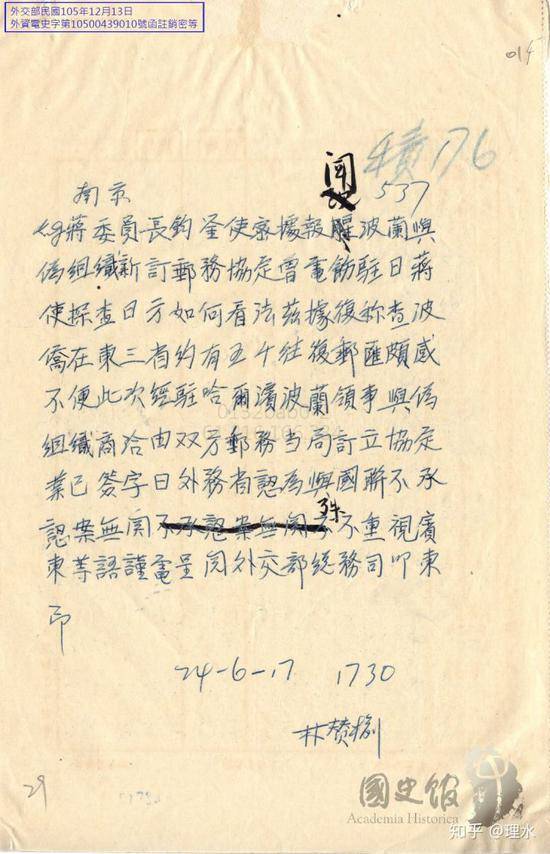 外交部民國105年12月13日
外資電史字第10500439010號函註銷密等
014
176
閻
537
南京
蔣委員長鈞鉴使密據報 波蘭與
偽組織新訂郵務協定曾電飭駐日蔣
使探查日方如何看法茲據復称查波
僑在東三省約有五千往復郵匯頗感
不便此次經駐哈爾濱波蘭領事與偽
組織商洽由双方郵務当局訂立協定
業已簽字日外務省認為與國聯不承
認案無関不承認案無関殊不重視廣
東等語謹電呈 外交部總務司叩東
印
24-6-17 1730
林贊
29
國史館
Academia Historica
知乎 @理水